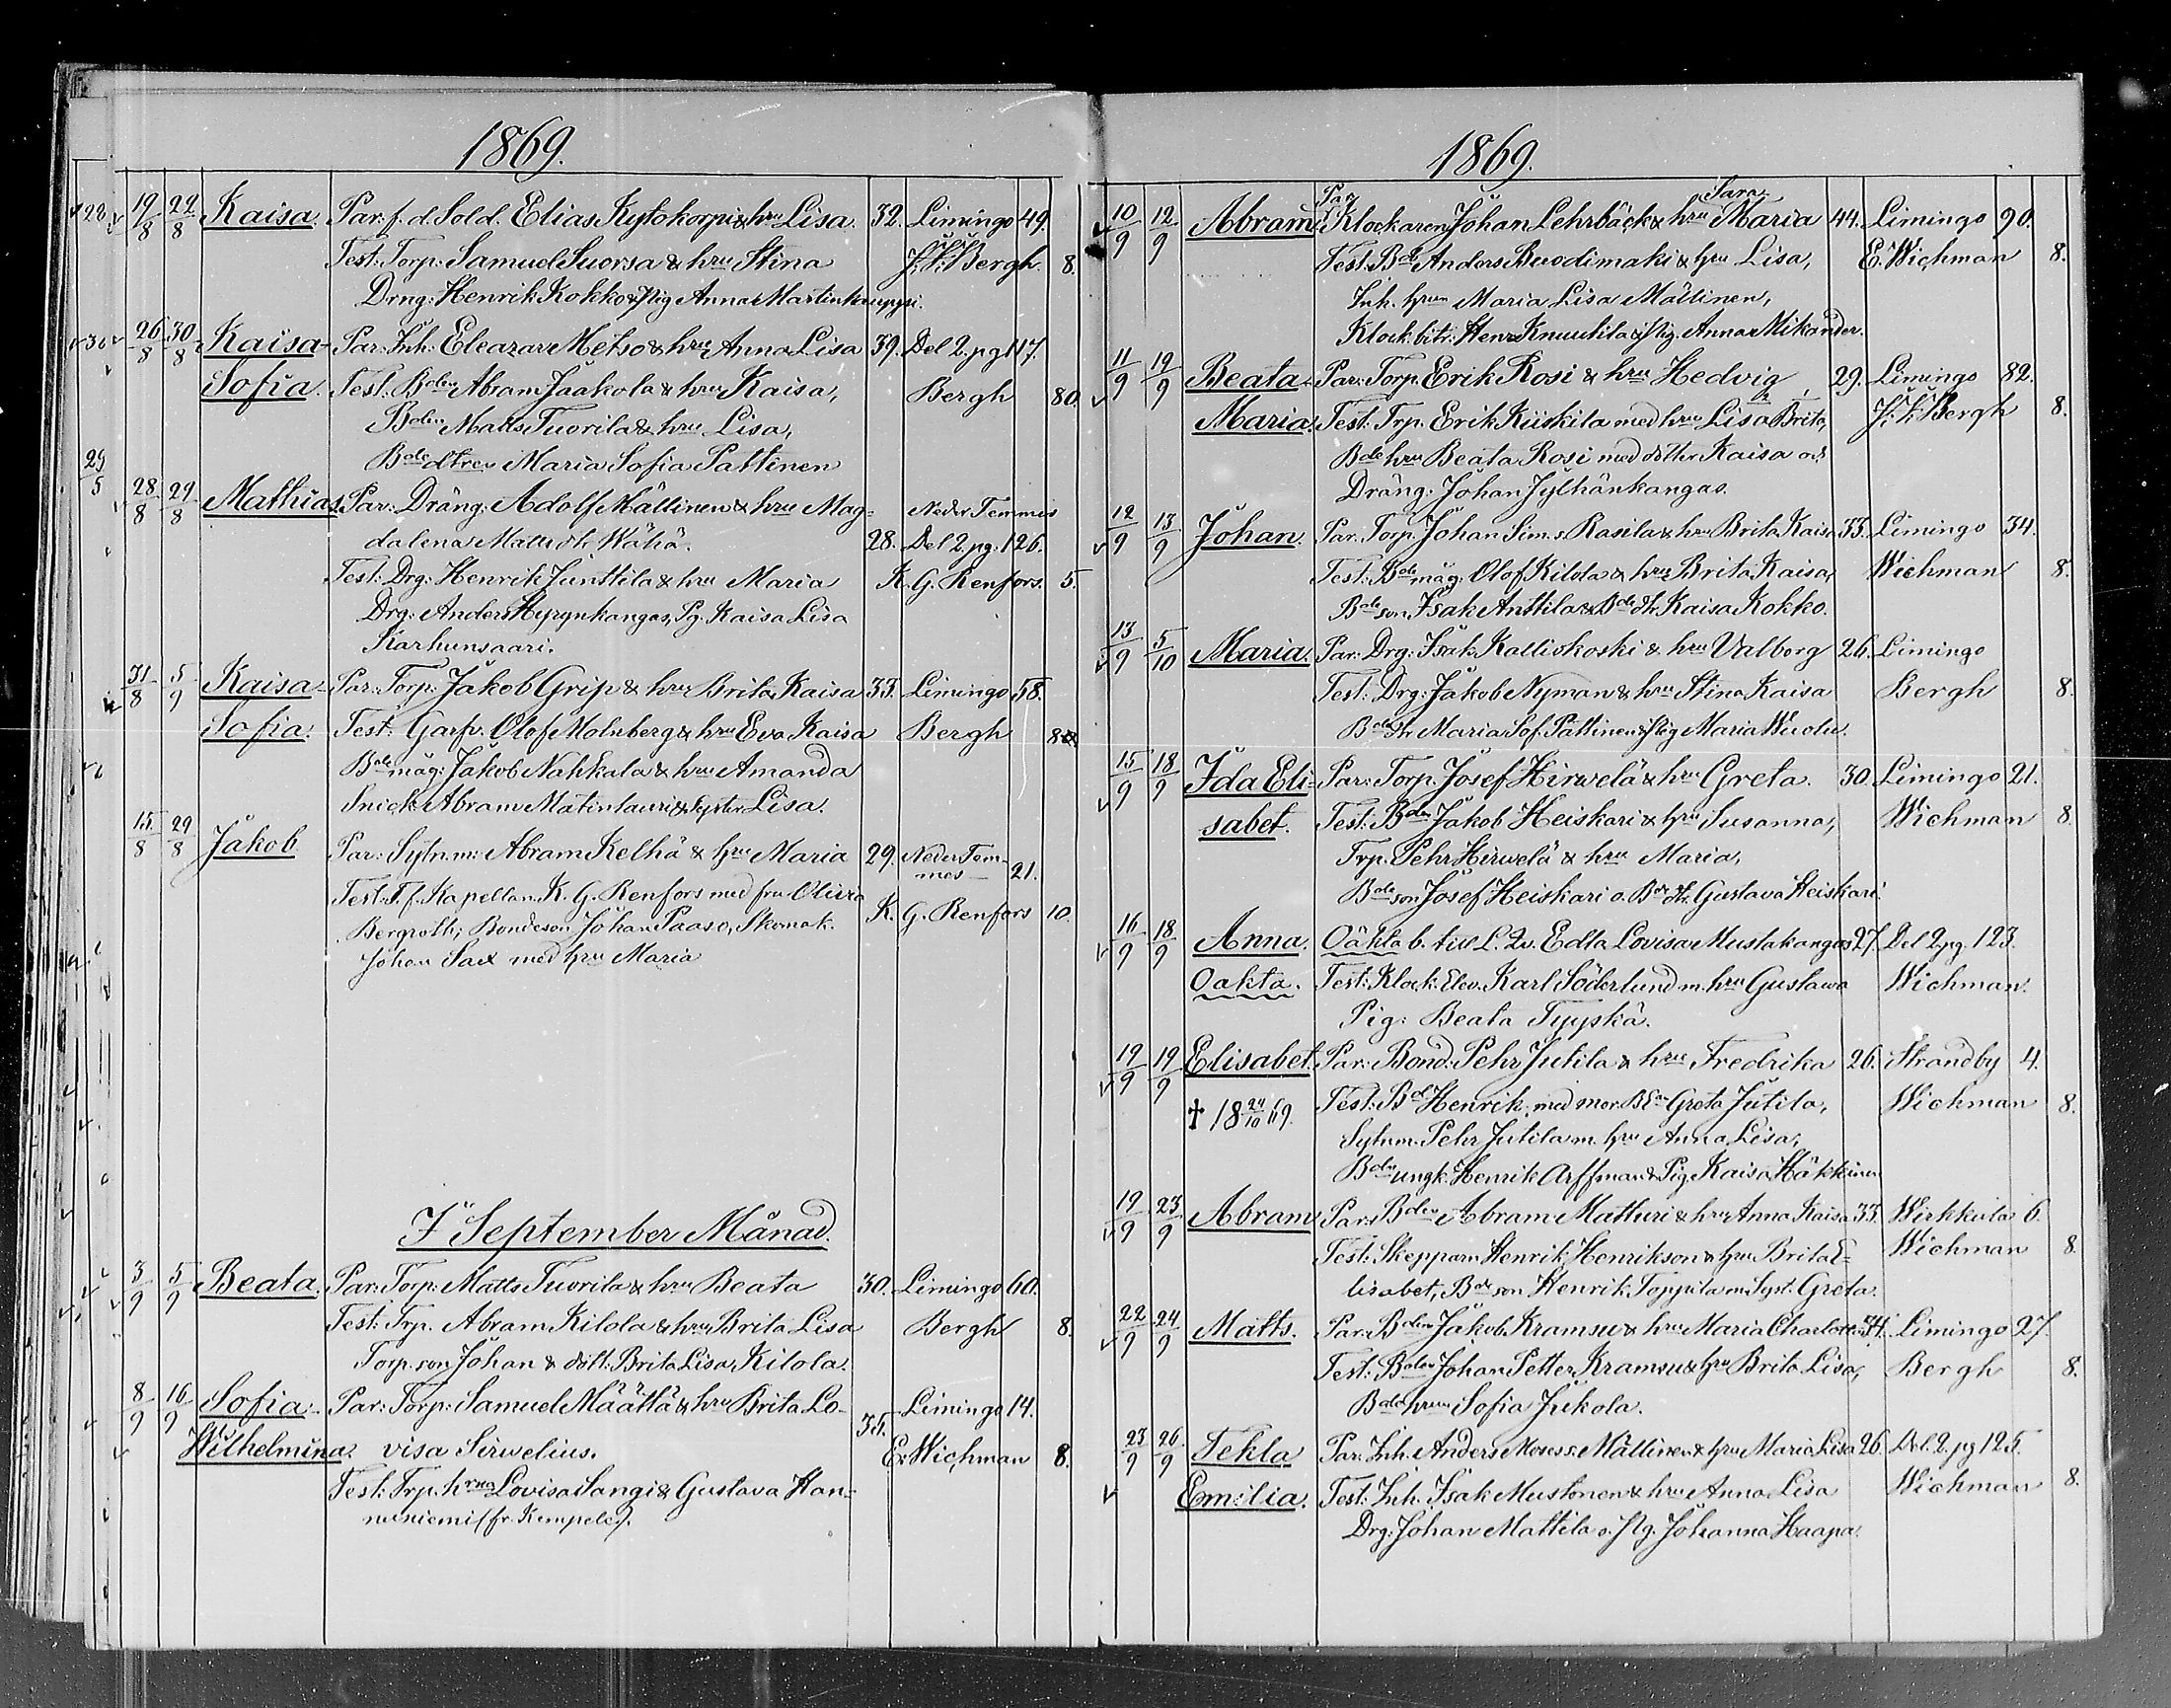 1869.
28 19/8 22/8 Kaisa. Par: f. d. Sold. Elias Kytokorpi & hru Lisa. 32. Limingo 49.
Test: Torp: Samuel Suorsa & hru Stina J. F. Bergh. 8.
Drng: Henrik Kokko & Pig Anna Martinkauppi.
26/8 30/8 Kaisa- Par: Inh: Eleazar Metso & hru Anna Lisa 39. Del 2. pg 117.
Sofia. Test: Bden Abram Jaakola & hru Kaisa, Bergh 80.
Bden Matts Tuorila & hru Lisa,
Bdedtren Maria Sofia Pattinen
29/5
28/8 29/8 Mathias. Par: Dräng: Adolf Mällinen & hru Mag= Neder Temmis
dalena Mattsdtr Wähä. 28. Del 2. pg. 126.
Test: Drg: Henrik Junttila & hru Maria K. G. Renfors. 5.
Drg: Anders Hyrynkangas, Pg. Kaisa Lisa
Karhunsaari.
31/8 5/9 Kaisa- Par: Torp: Jakob Grip & hru Brita Kaisa 33. Limingo 58.
Sofia. Test: Garfv. Olof Molnberg & hru Eva Kaisa Bergh 8
Bdemåg: Jakob Nahkala & hru Amanda
Snick: Abram Matinlauri & Syster Lisa.
15/8 29/8 Jakob Par: Sytn.m: Abram Kelhä & hru Maria 29. Neder Tem-
mes 21.
Test: T. f. Kapellan K. G. Renfors med fru Olivia K. G. Renfors 10.
Bergroth; Bondeson Johan Paaso, Skomak.
Johan Sax med hru Maria
I September Månad.
3/9 5/9 Beata. Par: Torp: Matts Tuorila & hru Beata 30. Limingo 60.
Test: Trp. Abram Kilola & hru Brita Lisa Bergh 8.
Torp. son Johan & dött: Brita Lisa Kilola.
8/9 16/9 Sofia- Par: Torp: Samuel Määttä & hru Brita Lo- 35. Limingo 14.
Wilhelmina. visa Sirwelius. E. Wichman 8.
Test: Trp. hrna Lovisa Sangi & Gustava Han-
nuniemi (fr. Kempele).
1869.
Sara
10/9 12/9 Abram Klockaren Johan Lehrbäck & hru Maria 44. Limingo 90.
Test: Bde Anders Buodimaki & hru Lisa, E. Wichman 8.
Inh. hrun Maria Lisa Mällinen,
Klock. bitr: Henr Knuutila & Pig. Anna Mikander.
11/9 19/9 Beata- Par: Torp. Erik Rosi & hru Hedvig 29. Limingo 82.
Maria. Test: Trp. Erik Kiiskila med hru Lisa Brita, J. F. Bergh 8.
Bde hru Beata Rosi med dotter Kaisa och
Dräng: Johan Jylhänkangas.
12/9 13/9 Johan. Par. Torp. Johan Sim. s. Rasila & hru Brita Kaisa 33. Limingo 34.
Test: Bdemåg: Olof Kilola & hru Brita Kaisa, Wichman 8.
Bdeson Isak Anttila & Bdedtr. Kaisa Kokko.
13/9 5/10 Maria. Par: Drg: Isak Kalliokoski & hru Valborg 26. Limingo
Test: Drg: Jakob Nyman & hru Stina Kaisa Bergh 8.
Bdedtr Maria Sof. Pattinen & Pig Maria Wuolu.
15/9 18/9 Ida Eli- Par: Torp. Josef Hirwelä & hru Greta. 30. Limingo 21.
sabet. Test: Bden Jakob Heiskari & hru Susanna, Wichman 8.
Trp. Pehr Hirwelä & hru Maria,
Bdeson Josef Heiskari o. Bdedtr. Gustava Heiskari.
16/9 18/9 Anna. Oäkta b. till L. Qv. Edla Lovisa Mustakangas 27. Del 2. pg. 123.
Oakta. Test: Klock. Elev. Karl Söderlund m. hru Gustawa Wichman.
Pig: Beata Typpskä.
19/9 19/9 Elisabet. Par: Bond: Pehr Jutila & hru Fredrika 26. Strandby 4.
✝ 18 24/10 69. Test: Bd Henrik med mor. Greta Jutila, Wichman 8.
Sytnm. Pehr Jutila m. hru Anna Lisa,
Bden ungk: Henrik Arffman & Pig. Kaisa Häkkinen
19/9 23/9 Abram Par: Bden Abram Matturi & hru Anna Kaisa 33. Wirkkula 6.
Test: Skepparn Henrik Henrikson & hru Brita E- Wichman 8.
lisabet, Bdeson Henrik Toppila m. Syst. Greta.
22/9 24/9 Matts. Par: Bden Jakob Kramsu & hru Maria Charlotta 34. Limingo 27.
Test: Bden Johan Petter Kramsu & hru Brita Lisa, Bergh 8.
Bdehrun Sofia Jukola.
23/9 26/9 Tekla Par: Inh. Anders Moses s. Mällinen & hru Maria Lisa 26. Del. 2. pg 125.
Emilia. Test: Inh. Isak Mustonen & hru Anna Lisa Wichman 8.
Drg: Johan Mattila o. Pg. Johanna Haapa.